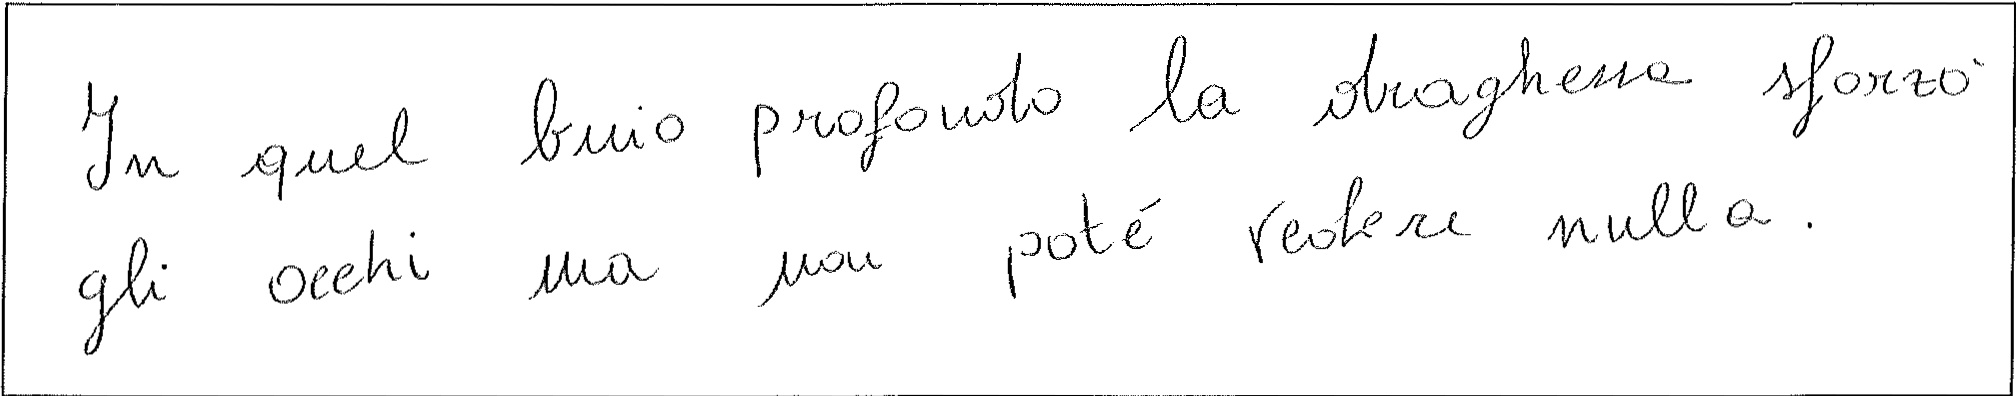 In quel buio profondo la draghessa sforzò
gli occhi ma non poté vedere nulla.